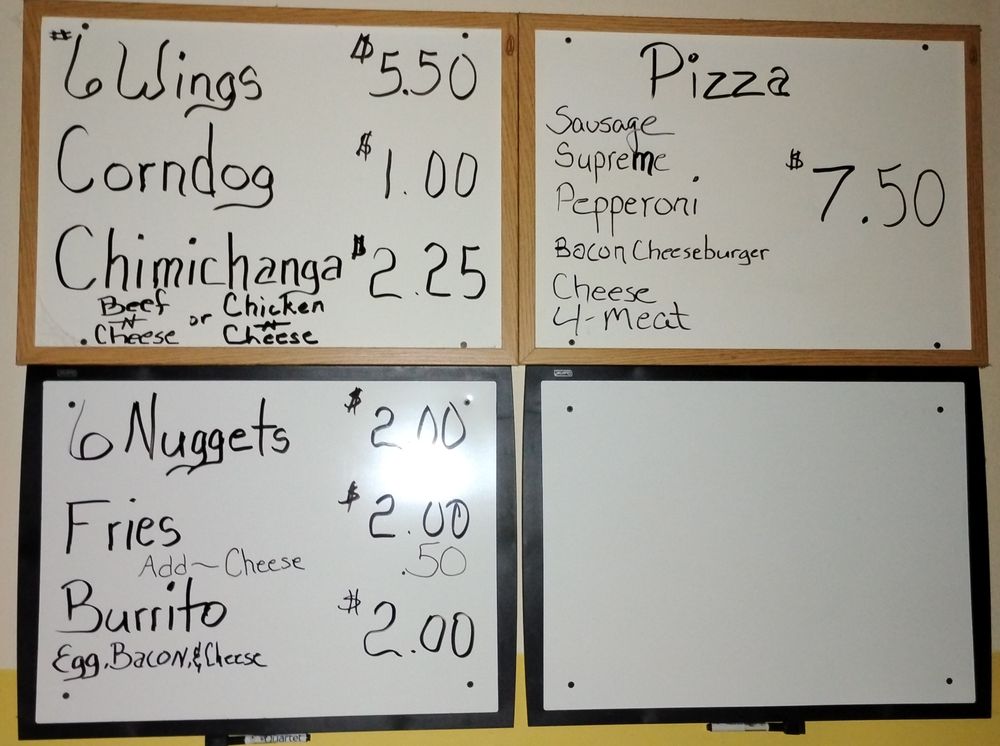 #6 Wings $5.50
Corndog $1.00
Chimichanga $2.25
Beef N Cheese or Chicken N Cheese
Pizza
Sausage
Supreme
Pepperoni
$7.50
Bacon Cheeseburger
Cheese
4-Meat
6 Nuggets $2.00
Fries $2.00
Add~Cheese .50
Burrito $2.00
Egg, Bacon, & Cheese
Quartet